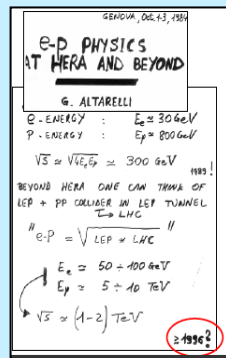 GENOVA, Oct. 1-3, 1984
e-p PHYSICS
AT HERA AND BEYOND
G. ALTARELLI
e - ENERGY : Ee ≃ 30 GeV
P - ENERGY : Ep ≃ 800 GeV
√S ≃ √4EeEp ≃ 300 GeV
1989!
BEYOND HERA ONE CAN THINK OF
LEP + PP COLLIDER IN LEP TUNNEL
↳ LHC
"e-p = √LEP × LHC"
Ee ≃ 50 ÷ 100 GeV
Ep ≃ 5 ÷ 10 TeV
√S ≃ (1-2) TeV
≥1996?